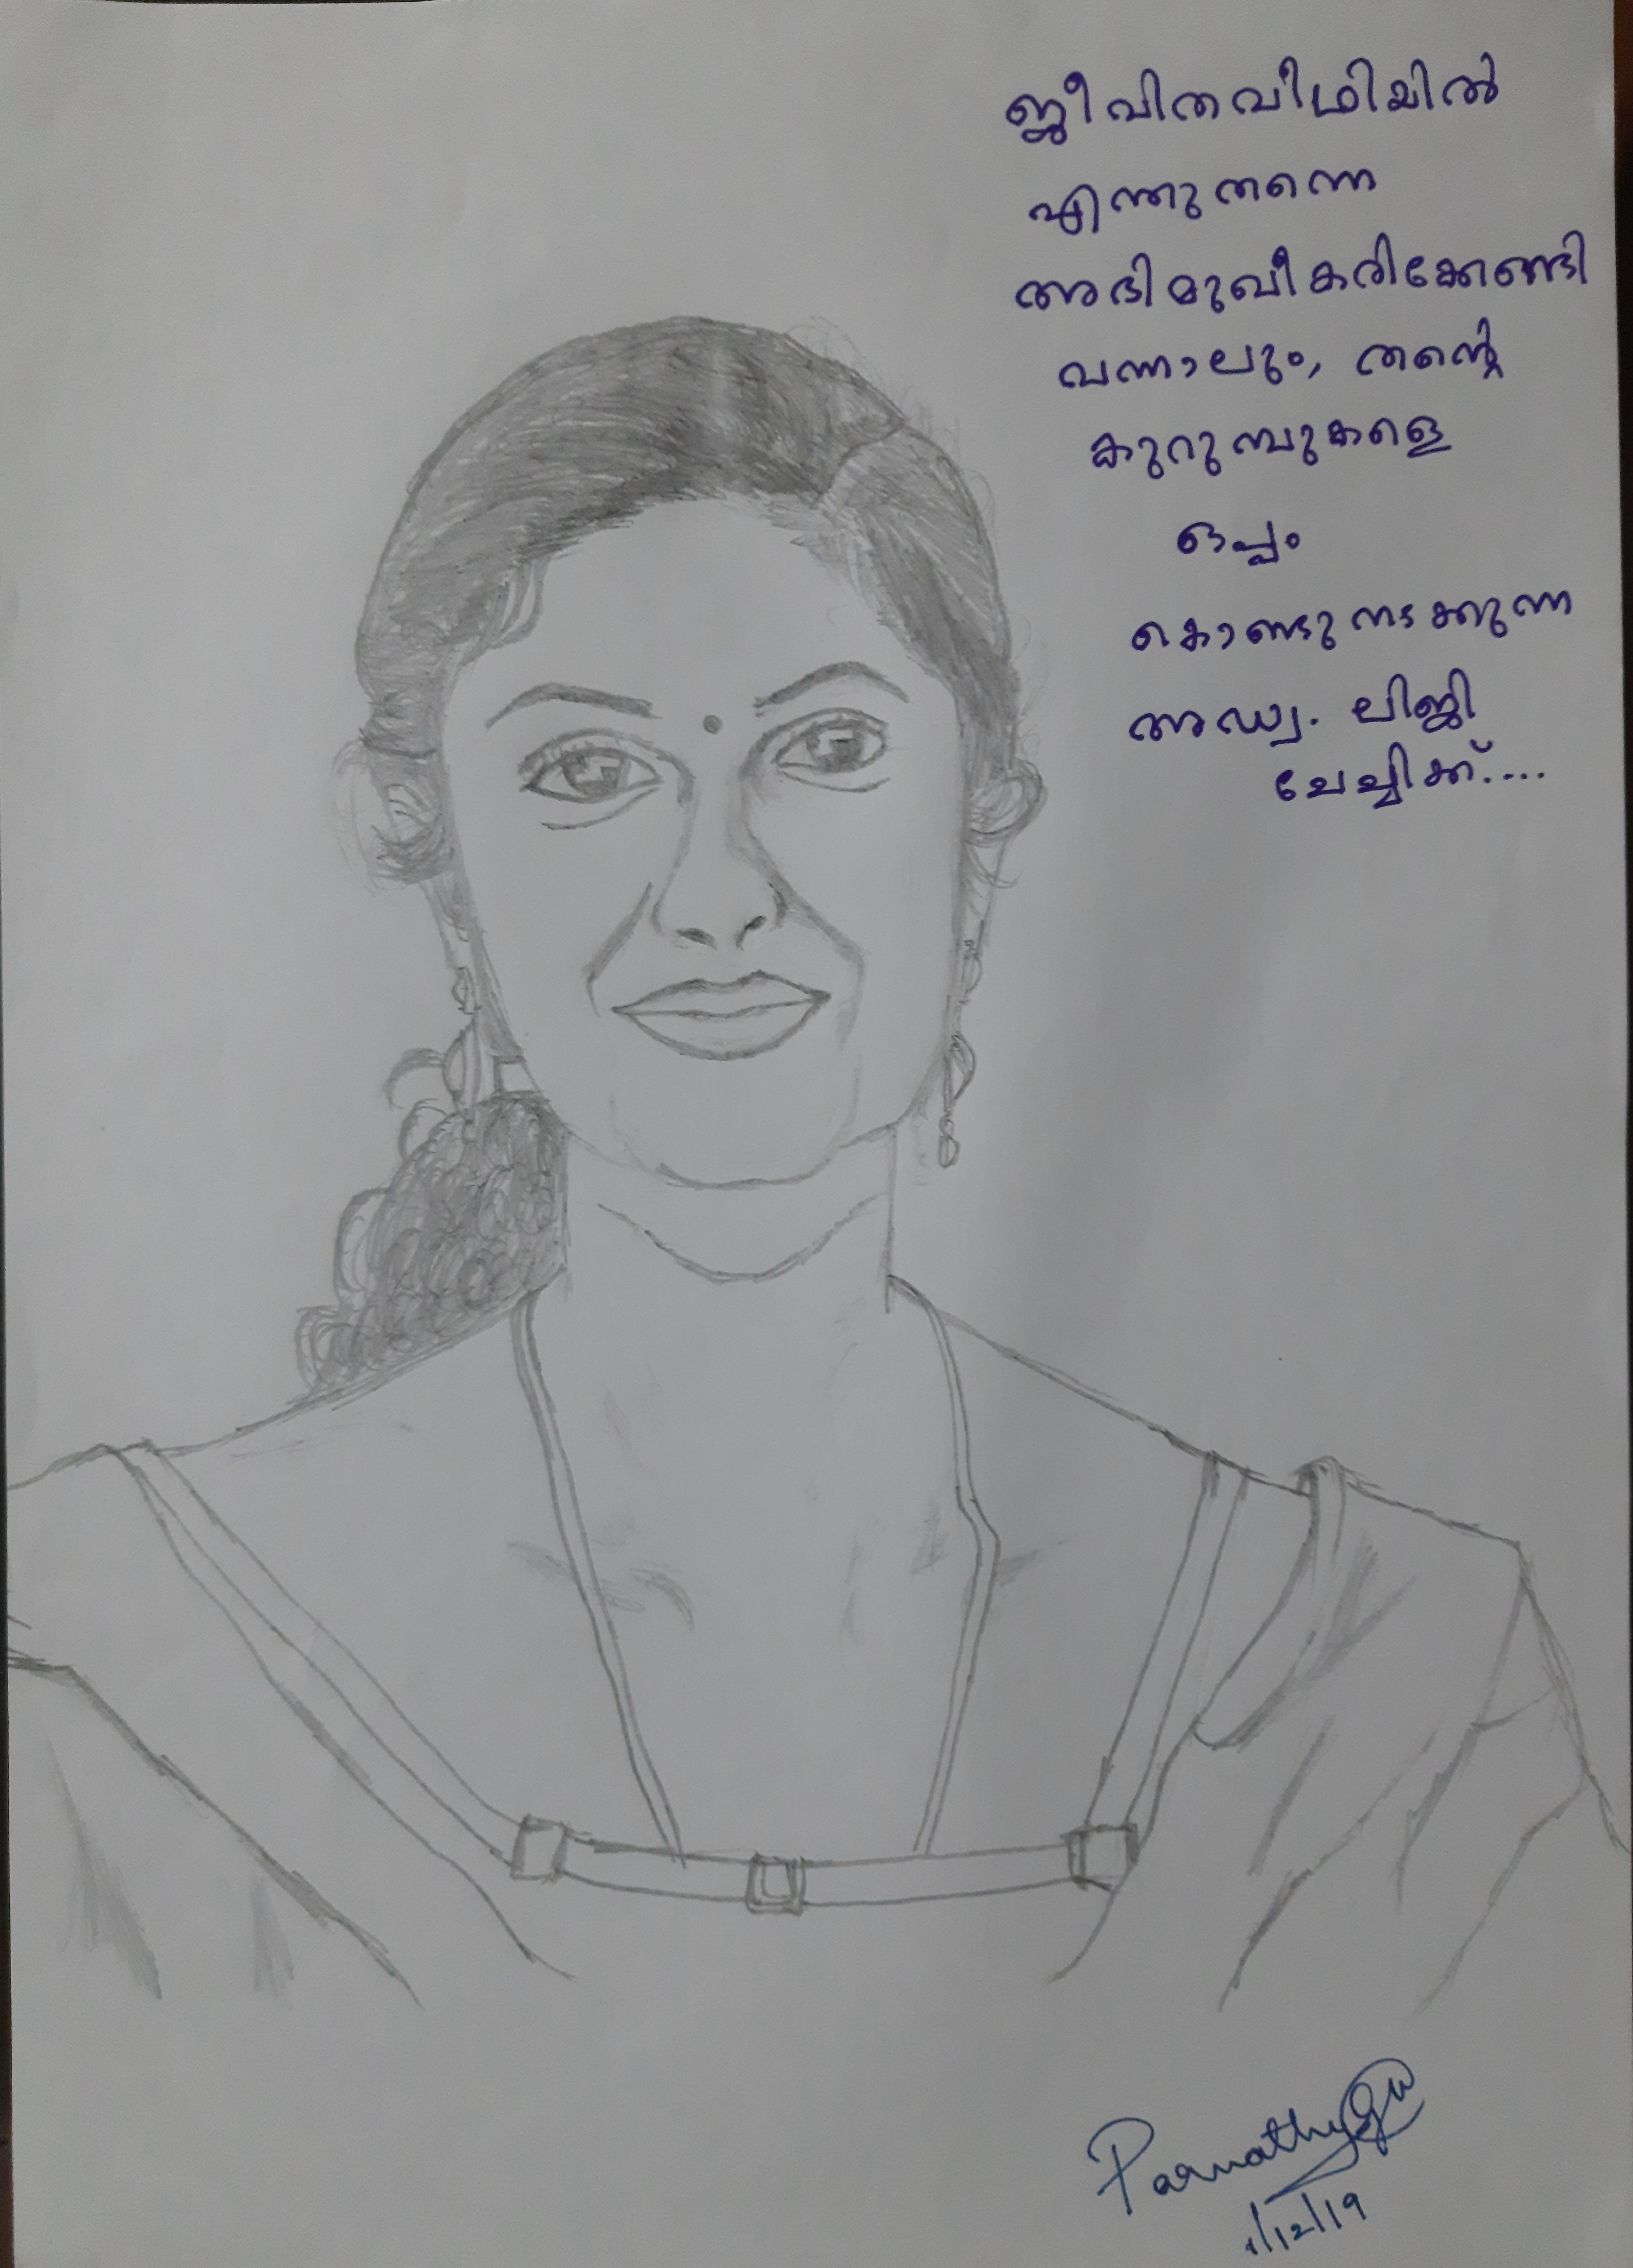 ജീവിതവീഥിയിൽ
എന്തുതന്നെ
അഭിമുഖീകരിക്കേണ്ടി
വന്നാലും, തന്റെ
കുറുമ്പുകളെ
ഒപ്പം
കൊണ്ടുനടക്കുന്ന
അഡ്വ. ലിജി
ചേച്ചിക്ക്....
Parvathy
1/12/19